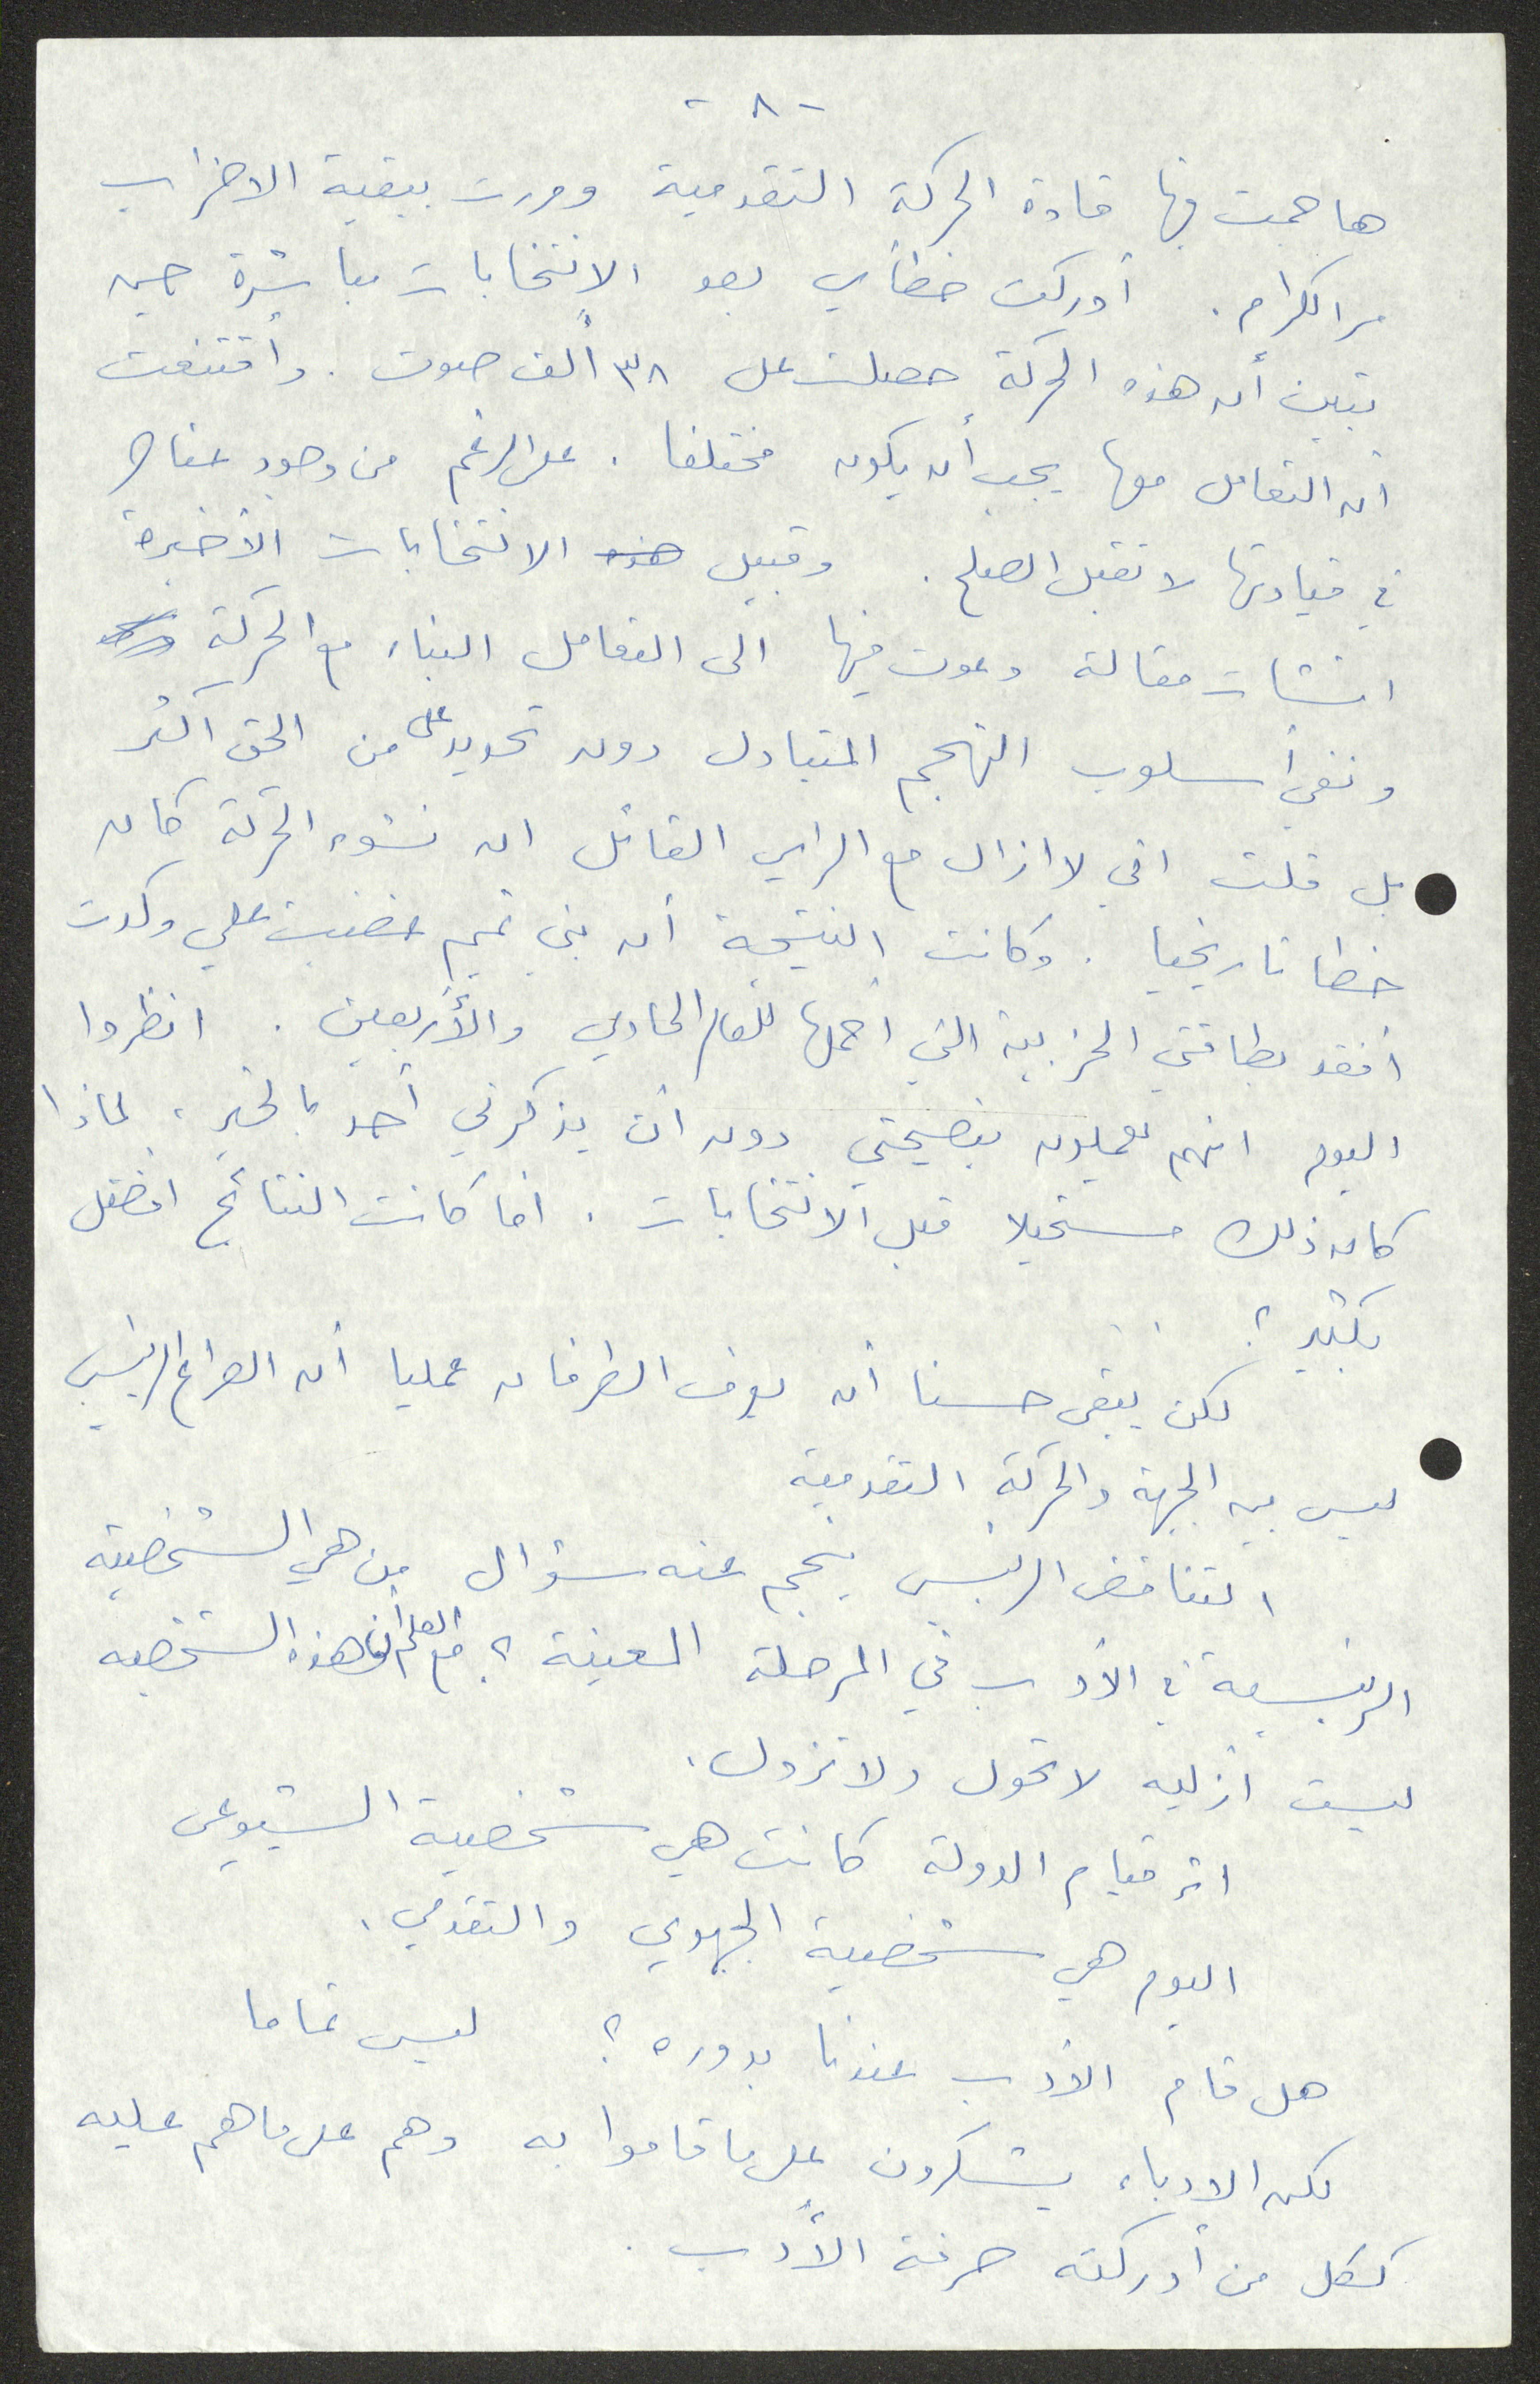 - ٨ -
هاجمت فيها قادة الحركة التقدمية ومررت ببقية الاحزاب
مر الكرام. أدركت خطأي بعد الانتخابات مباشرة حين
تبين أن هذه الحركة حصلت على ٣٨ ألف صوت. وأقتنعت
ان التعامل معها يجب أن يكون مختلفا. على الرغم من وجود عناصر
في قيادتها لا تقبل الصلح. وقبيل هذه الانتخابات الأخيرة
انشأت مقالة دعوت فيها الى التعامل البناء مع الحركة
ونفي أسلوب التهجم المتبادل دون تحديد على من الحق اكثر
بل قلت اني لا ازال مع الراي القائل ان نشوء الحركة كان
خطا تاريخيا. وكانت النتيجة أن بني تميم غضبت علي وكدت
أفقد بطاقتي الحزبية التي أحملها للعام الحادي والأربعين. انظروا
اليوم انهم يعملون بنصيحتي دون ان يذكرني أحد بالخير، لماذا
كان ذلك مستحيلا قبل الانتخابات. أما كانت النتائج افضل
بكثير؟
لكن يبقى حسنا أن يعرف الطرفان عمليا أن الصراع الرئيسي
ليس بين الجبهة والحركة التقدمية
التناقض الرئيسي ينجم عنه سؤال من هي الشخصية
الرئيسية في الأدب في المرحلة المعينة؟ مع العلم أن هذه الشخصيه
ليست أزليه لا تحول ولا تزول.
اثر قيام الدولة كانت هي شخصية الشيوعي
اليوم هي شخصية الجبهوي والتقدمي.
هل قام الأدب عندنا بدوره؟ ليس تماما
لكن الادباء يشكرون على ما قاموا به وهم على ما هم عليه
ككل من أدركته حرفة الأدب.